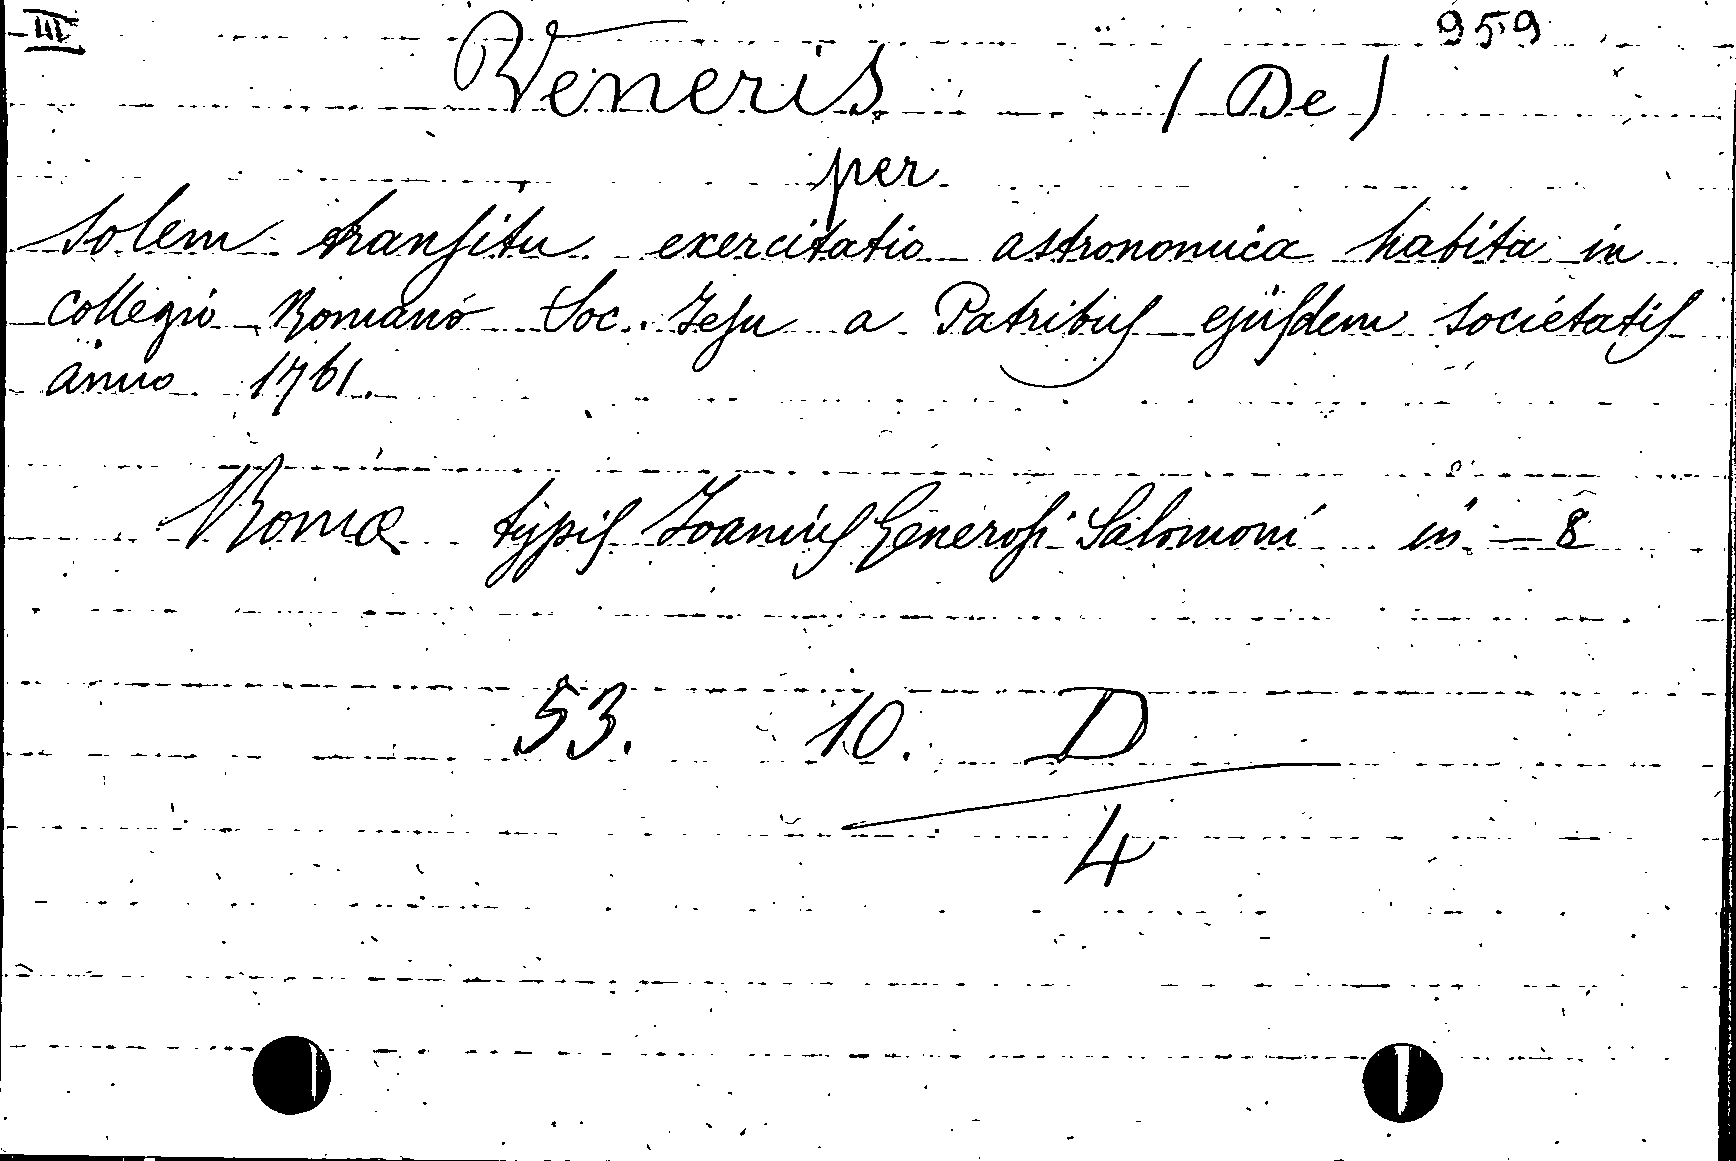 III 959
Veneris (De)
per
solem tranſitu exercitatio astronomica habita in
collegio Romano Soc. Jeſu a Patribuſ ejuſdem societatiſ
anno 1761.
Romæ typiſ Joanniſ Generoſi Salomoni in-8
53. 10. D
4